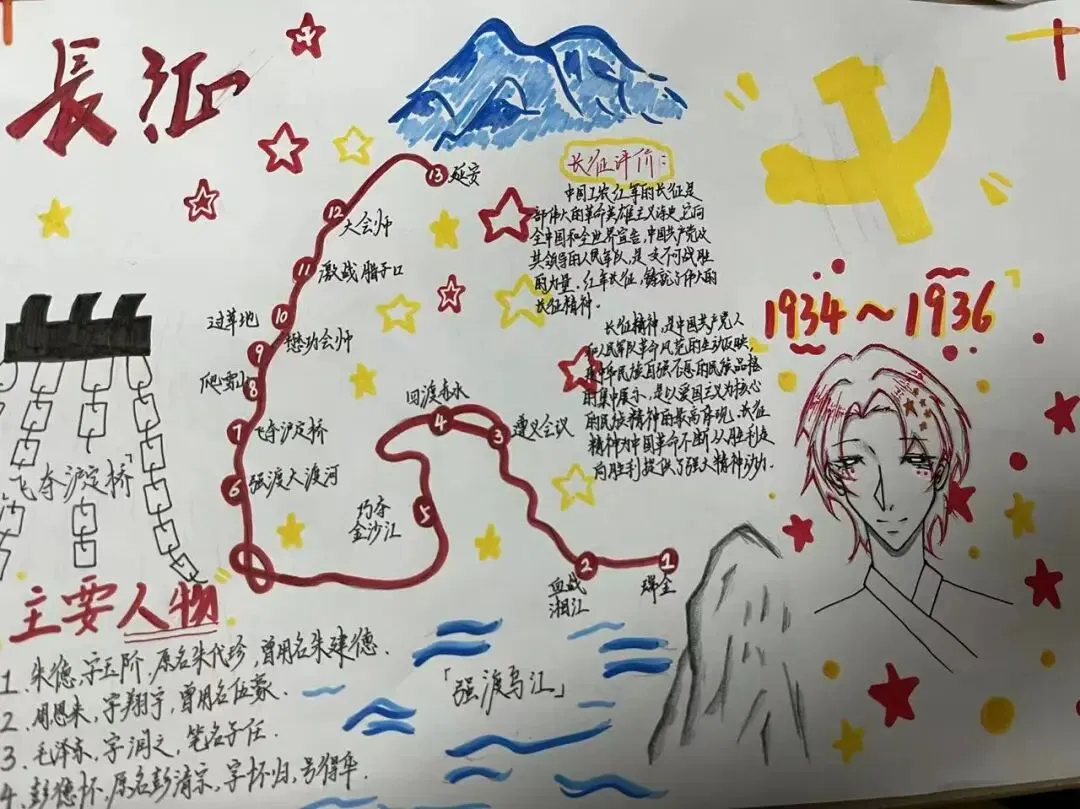 長征
长征评价:
中国工农红军的长征是
一部伟大的革命英雄主义诗史,它向
全中国和全世界宣告,中国共产党及
其领导的人民军队,是一支不可战胜
的力量.红军长征,铸就了伟大的
长征精神.
长征精神,是中国共产党人
和人民军队革命风范的生动反映,
是中华民族自强不息的民族品格
的集中展示,是以爱国主义为核心
的民族精神的最高体现.长征
精神为中国革命不断从胜利走
向胜利提供了强大精神动力.
1934～1936
13 延安
12 大会师
11 激战腊子口
10 懋功会师
9 过草地
8 爬雪山
7 飞夺泸定桥
6 强渡大渡河
5 巧夺
金沙江
4 四渡赤水
3 遵义会议
2 血战
湘江
1 瑞金
飞夺泸定桥」
主要人物
1.朱德,字玉阶,原名朱代珍,曾用名朱建德.
2.周恩来,字翔宇,曾用名伍豪.
3.毛泽东,字润之,笔名子任.
4.彭德怀,原名彭清宗,字怀归,号得华.
「强渡乌江」